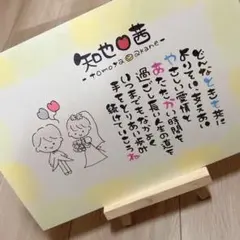 知也 茜
-tomoya akane-
どんなときも共に
よりそって支えあい
やさしい愛情と
あたたかい時間を
過ごし長い人生の道を
いつまでもなかよく
手をとりあい歩み
続けていこうね